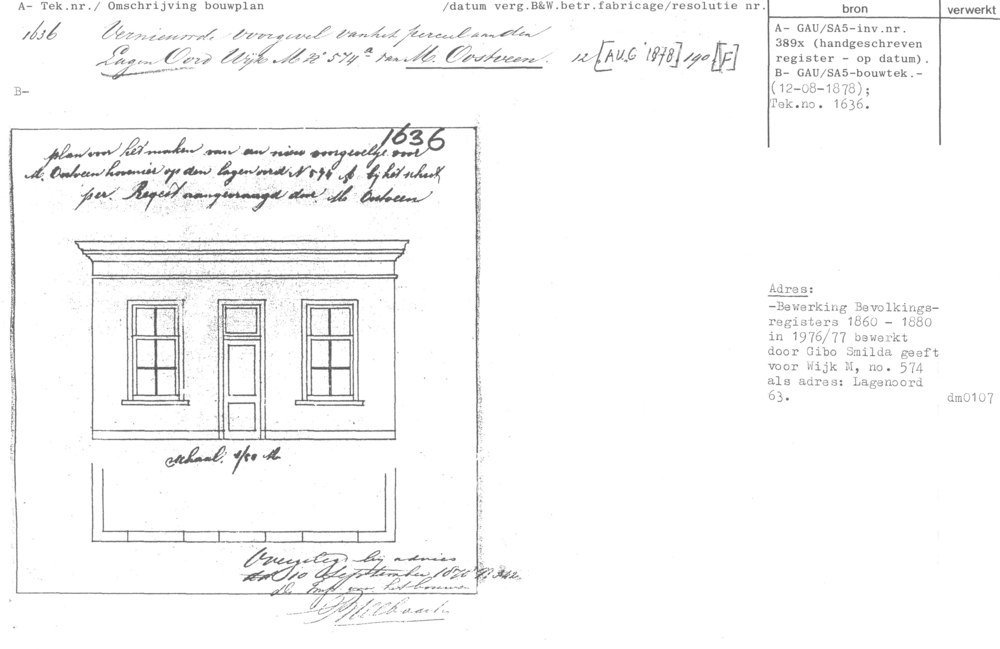 A- Tek.nr./ Omschrijving bouwplan /datum verg.B&W.betr.fabricage/resolutie nr. bron verwerkt
1636 Vernieuwde voorgevel van het perceel aan den
Lagen Oord Wijk M No 574a van M. Oostveen. 12 [AUG 1878] 190 [F]
A- GAU/SA5-inv.nr.
389x (handgeschreven
register - op datum).
B- GAU/SA5-bouwtek.-
(12-08-1878);
Tek.no. 1636.
B-
1636
plan voor het maken van een nieuw voorgeveltje voor
M. Oostveen hovenier op den lagen oord N 574 A bij het
per. Reqest aangevraagd door M. Oostveen
Schaal.
Adres:
-Bewerking Bevolkings-
registers 1860 - 1880
in 1976/77 bewerkt
door Gibo Smilda geeft
voor Wijk M, no. 574
als adres: Lagenoord
63.
dm0107
Overgelegd bij advies
10 September